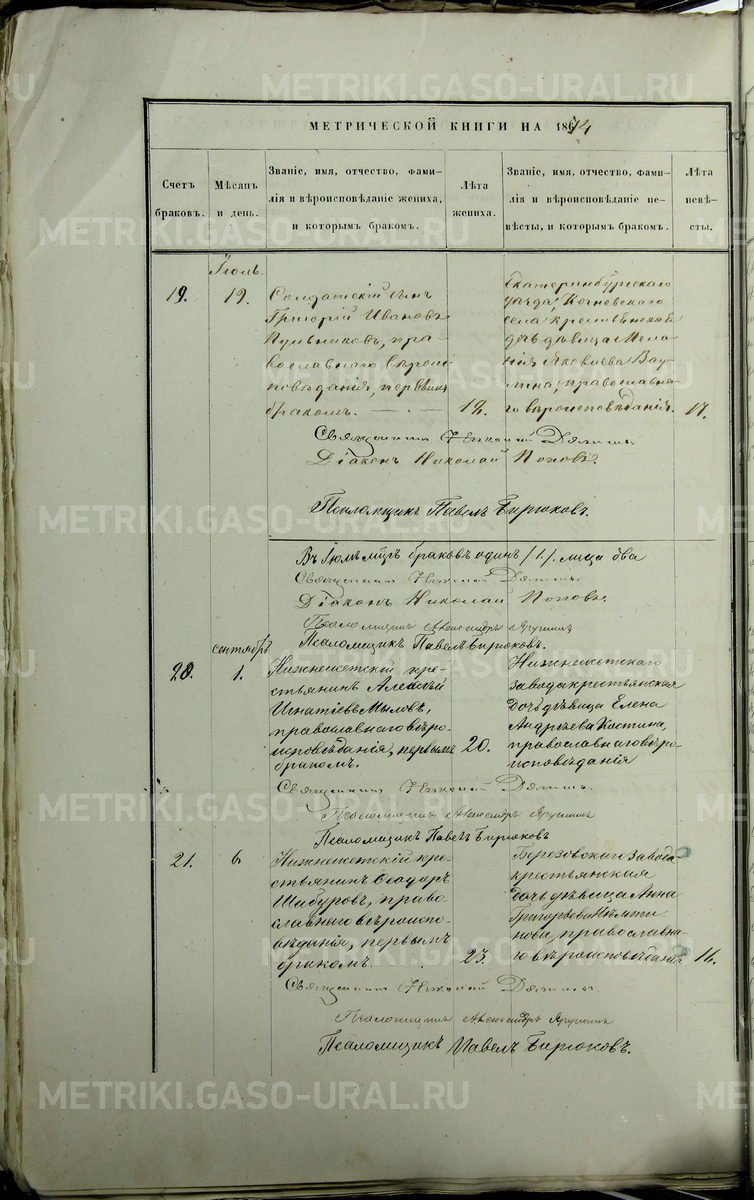 МЕТРИЧЕСКОЙ КНИГИ НА 1874
Счетъ браковъ.
Мѣсяцъ и день.
Званіе, имя, отчество, фами-
лія и вѣроисповѣданіе жениха,
и которымъ бракомъ.
Лѣта жениха.
Званіе, имя, отчество, фами-
лія и вѣроисповѣданіе не-
вѣсты, и которымъ бракомъ.
Лѣта невѣ-
сты.
Іюль.
19. 19.
Солдатскій сынъ
Григорій Ивановъ
Пульниковъ, пра-
вославнаго вѣрои-
повѣданія, первымъ
бракомъ.
19.
Екатеринбургскаго
уѣзда,
села, крестьянская
дочь дѣвица Мела-
нія Яковлева
православна-
го вѣроисповѣданія.
17.
Священникъ Николай
Діаконъ Николай Поповъ.
Псаломщикъ Павелъ Бирюковъ.
Въ Іюлѣ м-цѣ браковъ одинъ /1/. лица два
Священникъ Николай
Діаконъ Николай Поповъ.
Псаломщикъ Александръ
Псаломщикъ Павелъ Бирюковъ.
сентябрь
20. 1.
Нижнеисетскій кре-
стьянинъ Алексѣй
Игнатіевъ Мыловъ,
православнаго вѣро-
исповѣданія, первымъ
бракомъ.
20.
Нижнеисетскаго
завода крестьянская
дочь дѣвица Елена
Андрѣева Костина,
православнаго вѣро
исповѣданія
Священникъ Николай
Псаломщикъ Александръ
Псаломщикъ Павелъ Бирюковъ
21. 6
Нижнеисетскій кре-
стьянинъ Ѳеодоръ
Шабуровъ, право
славнаго вѣроиспо-
вѣданія, первымъ
бракомъ.
23.
Березовскаго завода
крестьянская
дочь дѣвица Анна
Григорьева
православна-
го вѣроисповѣданія
16.
Священникъ Николай
Псаломщикъ Александръ
Псаломщикъ Павелъ Бирюковъ.
METRIKI.GASO-URAL.RU